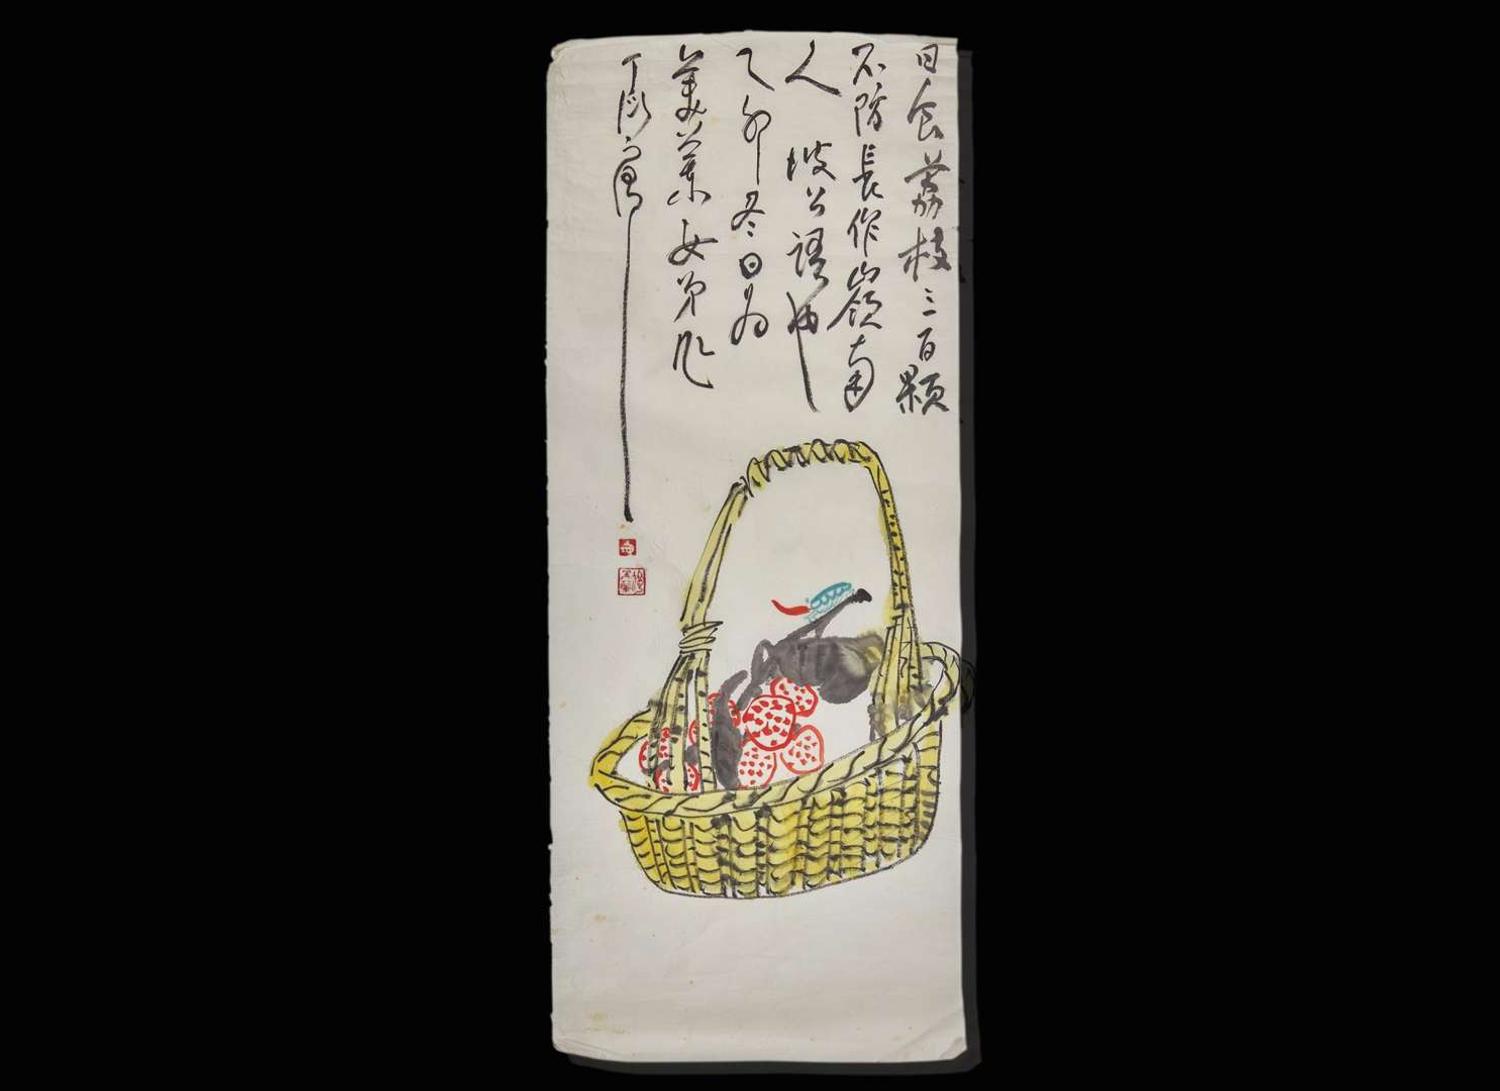 日食荔枝三百顆
不防長作嶺南
人 坡公語也
乙卯冬日為
美華女弟作
丁衍庸